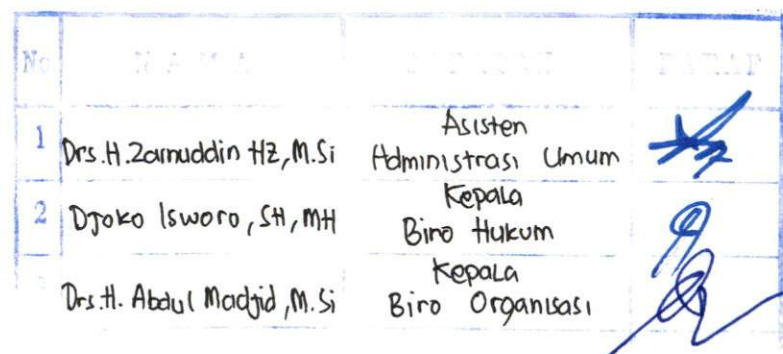 No NAMA JABATAN PARAF
1 Drs.H.Zainuddin HZ, M.Si Asisten
Administrasi Umum
2 Djoko Isworo, SH, MH Kepala
Biro Hukum
Drs.H. Abdul Madjid, M.Si Kepala
Biro Organisasi